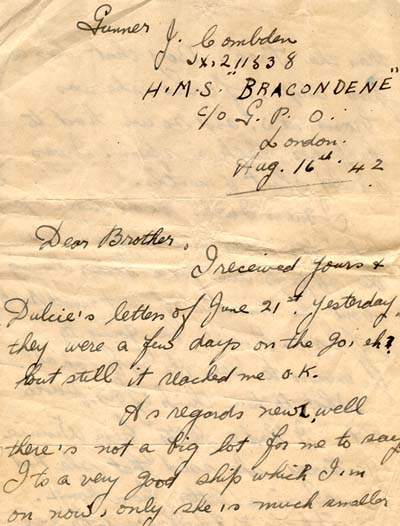 Gunner J. Combden
Jx. 211838
H.M.S. "BRACONDENE"
c/o G. P. O.
London.
Aug. 16th. 42
Dear Brother,
I received yours &
Dulcie's letters of June 21st. yesterday,
they were a few days on the go, eh?
but still it reached me O.K.
As regards news, well
there's not a big lot for me to say
Its a very good ship which I'm
on now, only she is much smaller